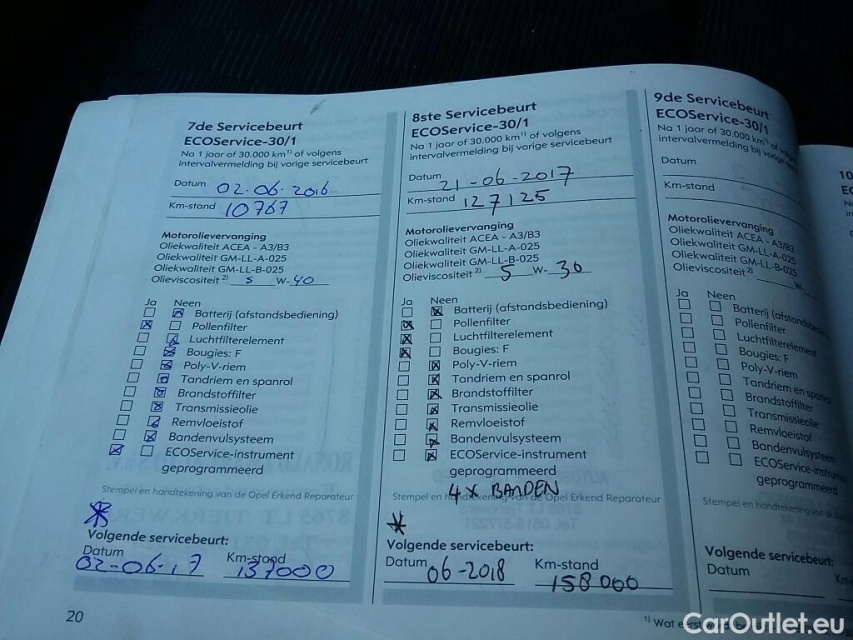 7de Servicebeurt
ECOService-30/1
Na 1 jaar of 30.000 km¹⁾ of volgens
intervalvermelding bij vorige servicebeurt
Datum 02-06-2016
Km-stand 10767
Motorolievervanging
Oliekwaliteit ACEA - A3/B3
Oliekwaliteit GM-LL-A-025
Oliekwaliteit GM-LL-B-025
Olieviscositeit ²⁾ 5 W-40
Ja Neen
Batterij (afstandsbediening)
Pollenfilter
Luchtfilterelement
Bougies: F
Poly-V-riem
Tandriem en spanrol
Brandstoffilter
Transmissieolie
Remvloeistof
Bandenvulsysteem
ECOService-instrument
geprogrammeerd
Stempel en handtekening van de Opel Erkend Reparateur
Volgende servicebeurt:
Datum Km-stand
02-06-17 137000
20
8ste Servicebeurt
ECOService-30/1
Na 1 jaar of 30.000 km¹⁾ of volgens
intervalvermelding bij vorige servicebeurt
Datum 21-06-2017
Km-stand 127125
Motorolievervanging
Oliekwaliteit ACEA - A3/B3
Oliekwaliteit GM-LL-A-025
Oliekwaliteit GM-LL-B-025
Olieviscositeit ²⁾ 5 W- 30
Ja Neen
Batterij (afstandsbediening)
Pollenfilter
Luchtfilterelement
Bougies: F
Poly-V-riem
Tandriem en spanrol
Brandstoffilter
Transmissieolie
Remvloeistof
Bandenvulsysteem
ECOService-instrument
geprogrammeerd
4x BANDEN
Stempel en handtekening van de Opel Erkend Reparateur
Volgende servicebeurt:
Datum 06-2018 Km-stand
158000
9de Servicebeurt
ECOService-30/1
Na 1 jaar of 30.000 km¹⁾ of volgens
intervalvermelding bij vorige
Datum
Km-stand
Motorolievervanging
Oliekwaliteit ACEA - A3/B3
Oliekwaliteit GM-LL-A-025
Oliekwaliteit GM-LL-B-025
Olieviscositeit ²⁾ W-
Ja Neen
Batterij (afstandsbediening
Pollenfilter
Luchtfilterelement
Bougies: F
Poly-V-riem
Tandriem en spanrol
Brandstoffilter
Transmissieolie
Remvloeistof
Bandenvulsysteem
ECOService-instrument
geprogrammeerd
Stempel en handtekening van de
Volgende servicebeurt:
Datum
¹⁾ Wat
CarOutlet.eu